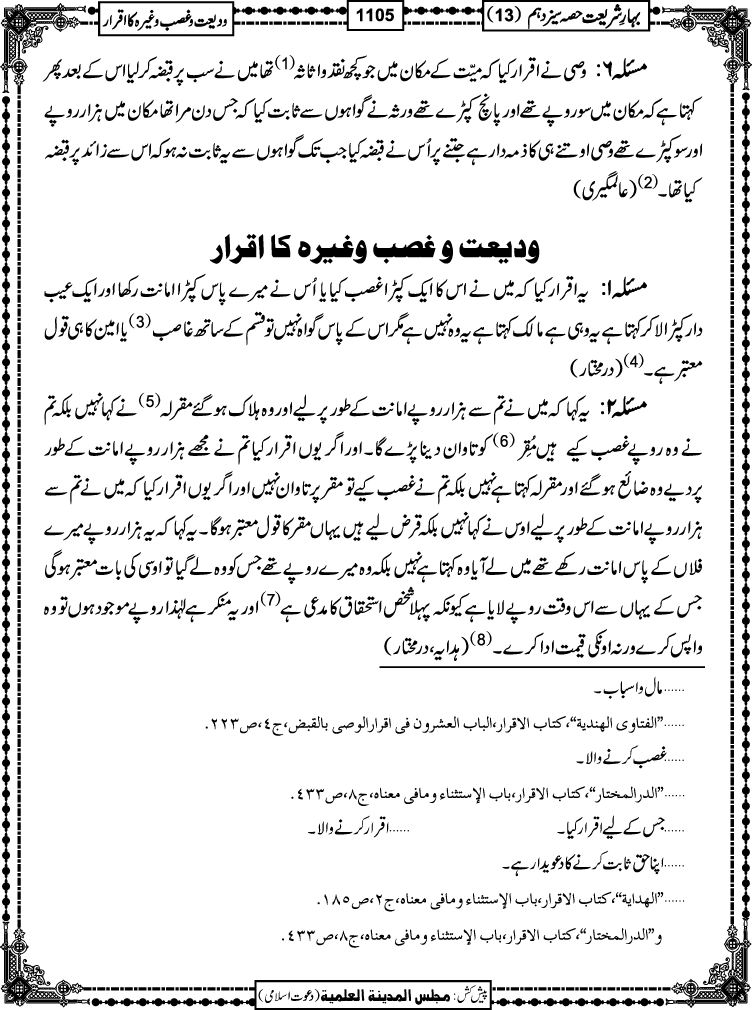 بہارِ شریعت حصہ سیزدہم (13)
1105
ودیعت و غصب وغیرہ کا اقرار
مسئلہ ۶: وصی نے اقرار کیا کہ میّت کے مکان میں جو کچھ نقد و اثاثہ (1) تھا میں نے سب پر قبضہ کر لیا اس کے بعد پھر
کہتا ہے کہ مکان میں سو روپے تھے اور پانچ کپڑے تھے ورثہ نے گواہوں سے ثابت کیا کہ جس دن مرا تھا مکان میں ہزار روپے
اور سو کپڑے تھے وصی اوتنے ہی کا ذمہ دار ہے جتنے پر اُس نے قبضہ کیا جب تک گواہوں سے یہ ثابت نہ ہو کہ اس سے زائد پر قبضہ
کیا تھا۔ (2) (عالمگیری)
ودیعت و غصب وغیرہ کا اقرار
مسئلہ ۱: یہ اقرار کیا کہ میں نے اس کا ایک کپڑا غصب کیا یا اُس نے میرے پاس کپڑا امانت رکھا اور ایک عیب
دار کپڑا لا کر کہتا ہے یہ وہی ہے مالک کہتا ہے یہ وہ نہیں ہے مگر اس کے پاس گواہ نہیں تو قسم کے ساتھ غاصب (3) یا امین کا ہی قول
معتبر ہے۔ (4) (درمختار)
مسئلہ ۲: یہ کہا کہ میں نے تم سے ہزار روپے امانت کے طور پر لیے اور وہ ہلاک ہو گئے مقرلہ (5) نے کہا نہیں بلکہ تم
نے وہ روپے غصب کیے ہیں مُقِر (6) کو تاوان دینا پڑے گا۔ اور اگر یوں اقرار کیا تم نے مجھے ہزار روپے امانت کے طور
پر دیے وہ ضائع ہو گئے اور مقرلہ کہتا ہے نہیں بلکہ تم نے غصب کیے تو مقر پر تاوان نہیں اور اگر یوں اقرار کیا کہ میں نے تم سے
ہزار روپے امانت کے طور پر لیے اوس نے کہا نہیں بلکہ قرض لیے ہیں یہاں مقر کا قول معتبر ہوگا۔ یہ کہا کہ یہ ہزار روپے میرے
فلاں کے پاس امانت رکھے تھے میں لے آیا وہ کہتا ہے نہیں بلکہ وہ میرے روپے تھے جس کو وہ لے گیا تو اوسی کی بات معتبر ہوگی
جس کے یہاں سے اس وقت روپے لایا ہے کیونکہ پہلا شخص استحقاق کا مدعی ہے (7) اور یہ منکر ہے لہٰذا روپے موجود ہوں تو وہ
واپس کرے ورنہ اونکی قیمت ادا کرے۔ (8) (ہدایہ، درمختار)
......مال و اسباب۔
......”الفتاوی الھندیة“، کتاب الاقرار، الباب العشرون فی اقرار الوصی بالقبض، ج٤، ص٢٢٣.
......غصب کرنے والا۔
......”الدرالمختار“، کتاب الاقرار، باب الإستثناء ومافی معناه، ج٨، ص٤٣٣.
......جس کے لیے اقرار کیا۔ ......اقرار کرنے والا۔
......اپنا حق ثابت کرنے کا دعویدار ہے۔
......”الھدایة“، کتاب الاقرار، باب الإستثناء ومافی معناه، ج٢، ص١٨٥.
و”الدرالمختار“، کتاب الاقرار، باب الإستثناء ومافی معناه، ج٨، ص٤٣٣.
پیش کش: مجلس المدینة العلمیة (دعوتِ اسلامی)